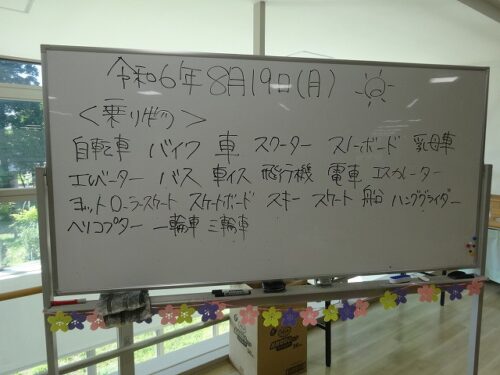 令和6年8月19日(月)
<乗り物>
自転車 バイク 車 スクーター スノーボード 乳母車
エレベーター バス 車イス 飛行機 電車 エスカレーター
ヨット ローラースケート スケートボード スキー スケート 船 ハンググライダー
ヘリコプター 一輪車 三輪車